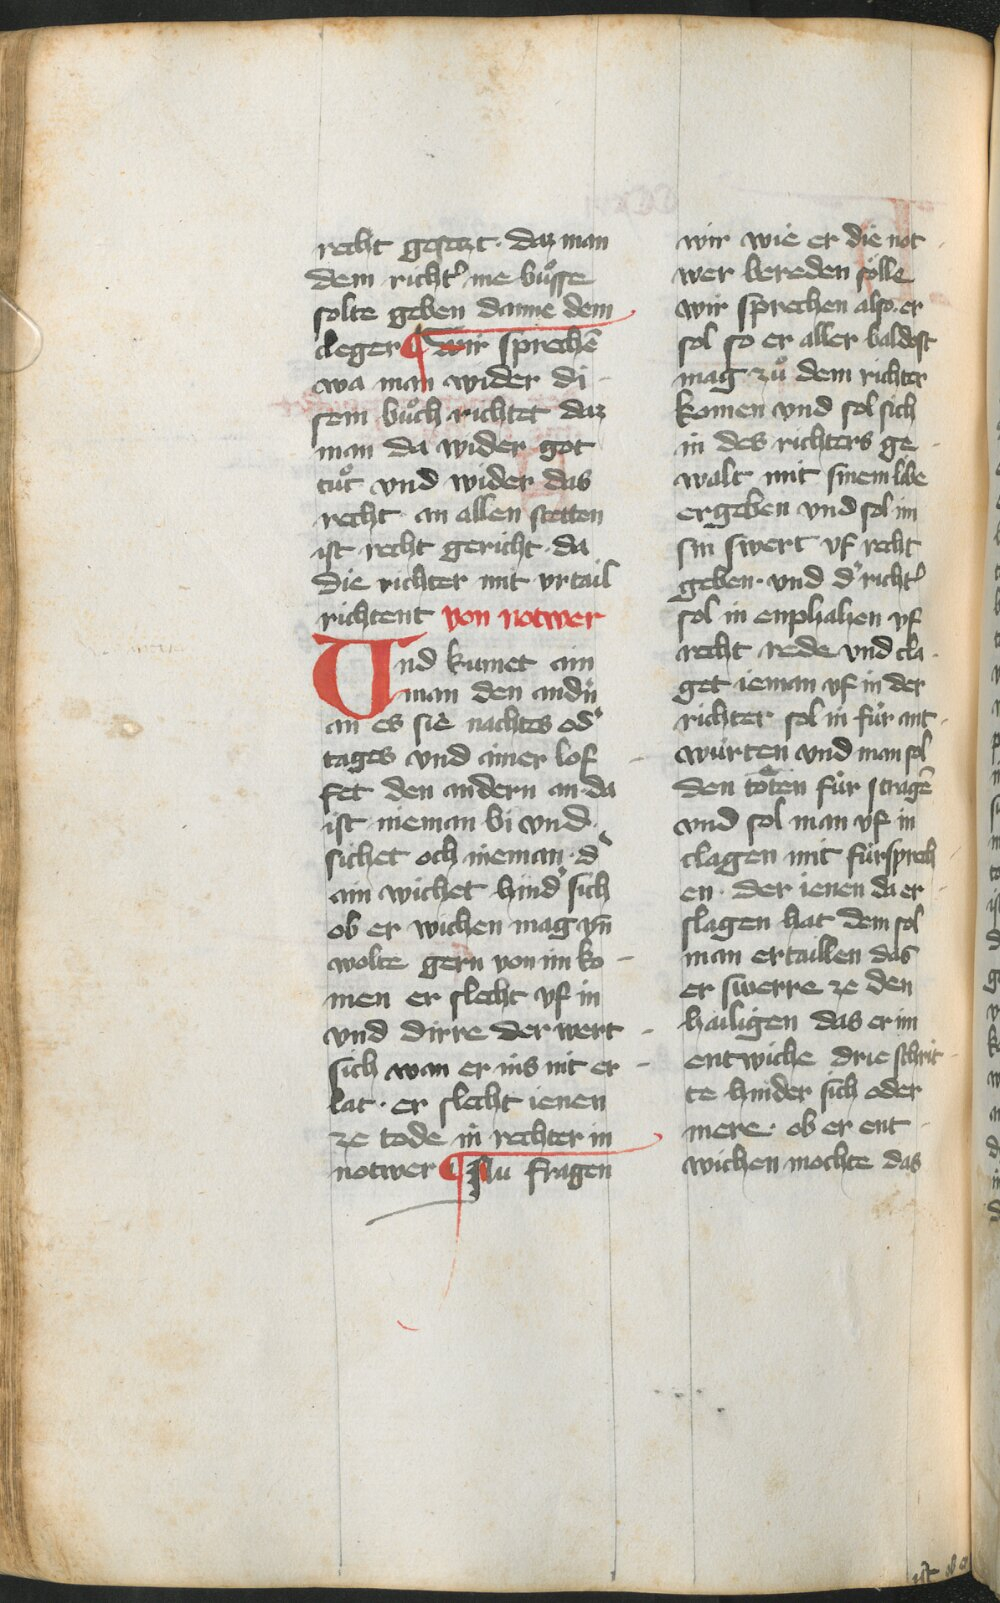 recht gesetzt · daz man
dem richt᾽ me buͦsse
solte geben danne dem
cleger ¶ wir sprechē
wa man wider di
sem buͦch richtet daz
man da wider got
tuͦt vnd wider das
recht an allen stetten
ist recht gericht · da
die richter mit vrtail
richtent von notwer
Vnd kumet ain
man den andn̄
an es sie nachtes od᾽
tages vnd ainer lof
fet den andern an · da
ist nieman bi vnd
sichet och nieman · d᾽
ain wichet hind᾽ sich
ob er wichen mag vn̄
wolte gern von im ko
men er slecht vf in
vnd dirre der wert
sich wan er ins nit er
lat · er slecht ienen
ze tode in rechter in
notwer ¶ Nu fragen
wir wie er die not
wer bereden soͤlle
wir sprechen also · er
sol so er aller baldest
mag zuͦ dem richter
komen vnd sol sich
in des richters ge
walt mit sinem libe
ergeben vnd sol im
sin swert vf recht
geben · vnd d᾽ richt᾽
sol in enphahen vf
recht rede vnd cla
get ieman vf in der
richter sol in fuͤr ant
wuͤrten vnd man sol
den toͤten fuͤr tragē
vnd sol man vf in
clagen mit fuͤrsprech
en · der ienen da er
slagen hat dem sol
man ertaillen das
er swerre ze den
hailigen das er im
entwiche drie schrit
te hinder sich oder
mere · ob er ent
wichen mochte das